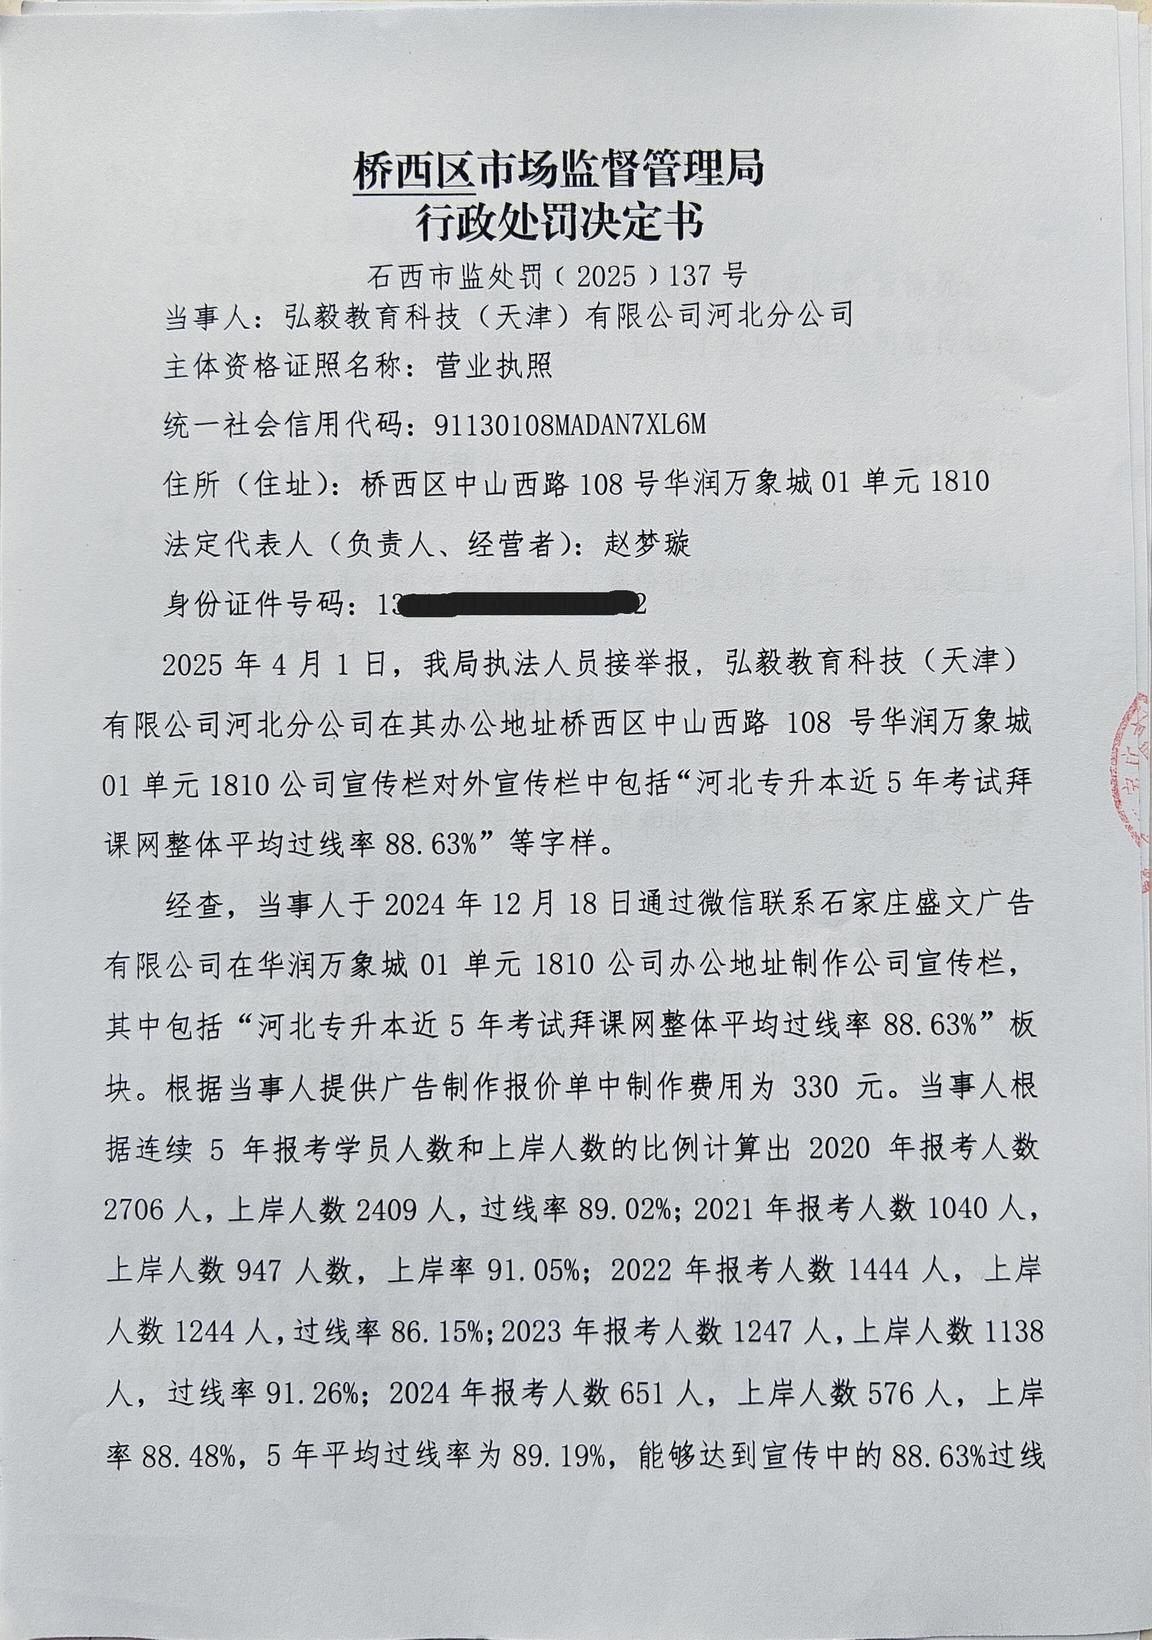 桥西区市场监督管理局
行政处罚决定书
石西市监处罚﹝2025﹞137号
当事人：弘毅教育科技（天津）有限公司河北分公司
主体资格证照名称：营业执照
统一社会信用代码：91130108MADAN7XL6M
住所（住址）：桥西区中山西路108号华润万象城01单元1810
法定代表人（负责人、经营者）：赵梦璇
身份证件号码：13 2
2025年4月1日，我局执法人员接举报，弘毅教育科技（天津）
有限公司河北分公司在其办公地址桥西区中山西路 108 号华润万象城
01单元1810公司宣传栏对外宣传栏中包括“河北专升本近5年考试拜
课网整体平均过线率88.63%”等字样。
经查，当事人于2024年12月18日通过微信联系石家庄盛文广告
有限公司在华润万象城01单元1810公司办公地址制作公司宣传栏，
其中包括“河北专升本近5年考试拜课网整体平均过线率88.63%”板
块。根据当事人提供广告制作报价单中制作费用为 330 元。当事人根
据连续 5 年报考学员人数和上岸人数的比例计算出 2020 年报考人数
2706人，上岸人数2409人，过线率89.02%；2021年报考人数1040人，
上岸人数947人数，上岸率91.05%；2022年报考人数1444人，上岸
人数1244人，过线率86.15%；2023年报考人数1247人，上岸人数1138
人，过线率91.26%；2024年报考人数651人，上岸人数576人，上岸
率88.48%，5年平均过线率为89.19%，能够达到宣传中的88.63%过线